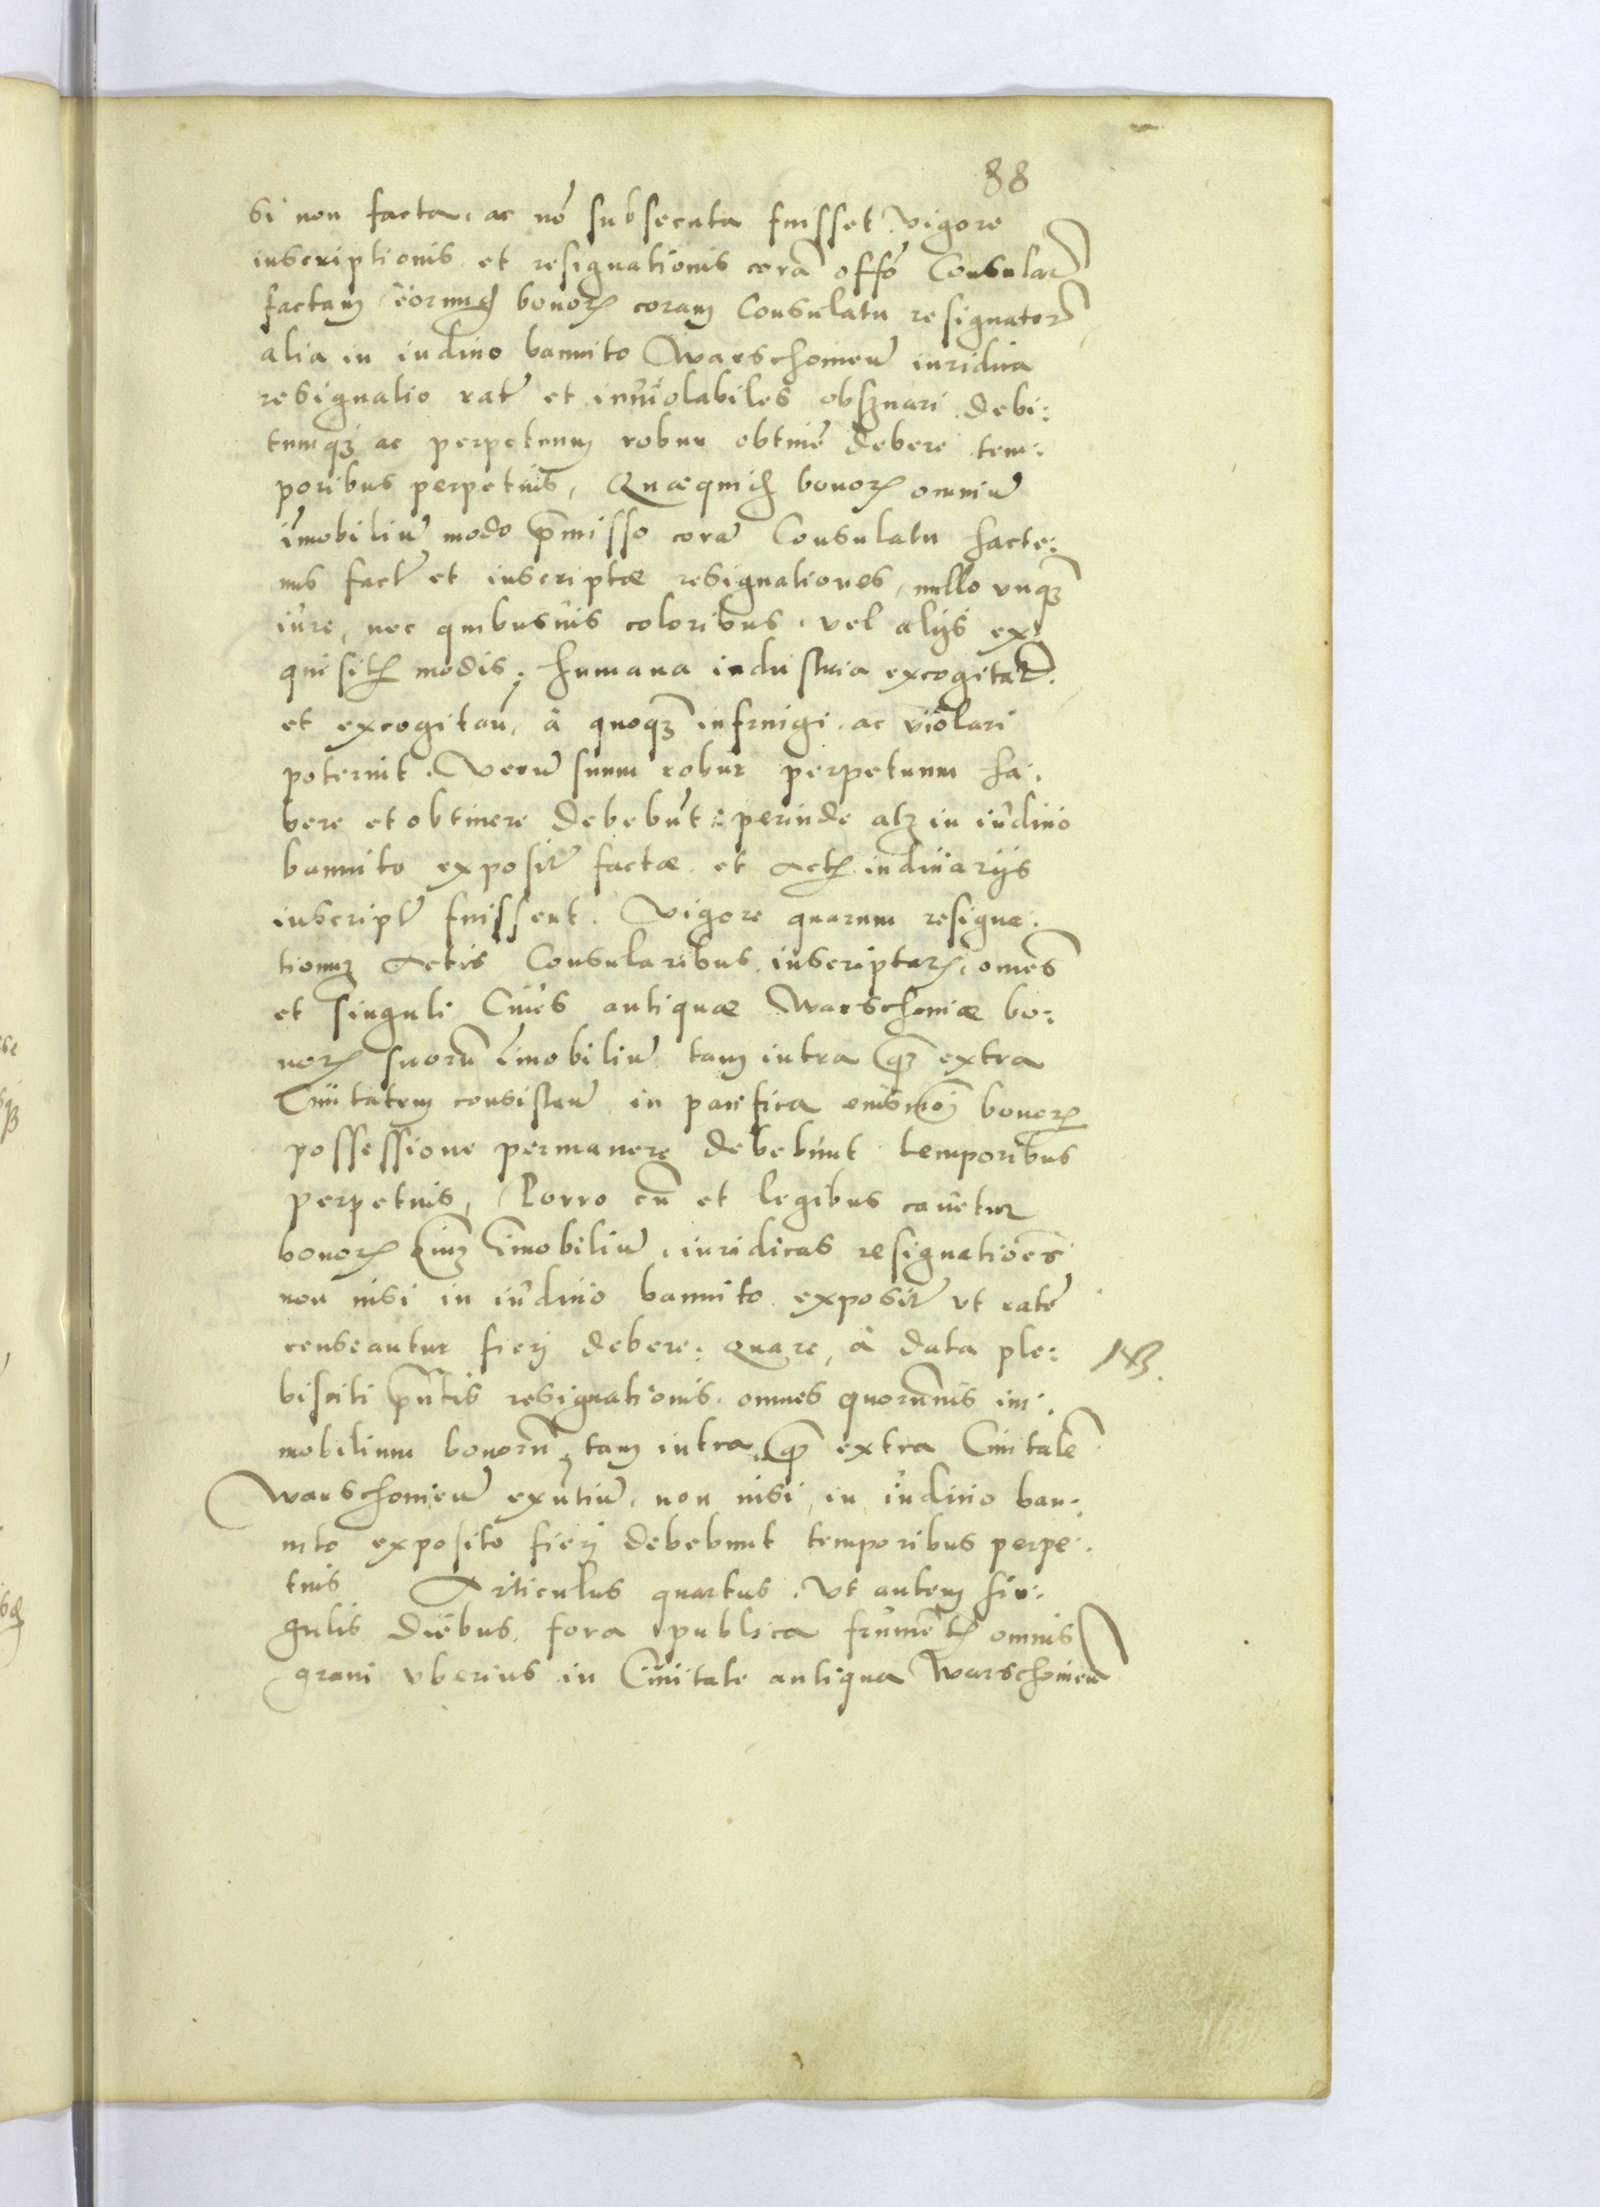 88
si non facta, ac nō subsecuta fuisset vigore
inscriptionis et resignationis corā offō Consulari
factam eorumd bonorꝝ coram Consulatu resignator
alia in iudicio bannito Warschouieñ iuridica
resignatio ratę et inuiolabiles obseruari debi:
tumqꝫ ac perpetuum robur obtinē debere tem:
poribus perpetuis, Quæquid bonorꝝ omniū
īmobiliū modo p̄misso corā Consulatu hacte:
nus factę et inscriptæ resignationes, nullo vnqꝫ
iure, nec quibusuis coloribus, vel alijs ex
quisitis modis, humana industria excogitatis
et excogitañ, à quoqꝫ infringi ac violari
poterint. Verū suum robur perpetuum ha:
bere et obtinere debebūt perinde atqꝫ in iudicio
bannito exposito factæ et Actis iudiciarijs
inscriptę fuissent. Vigore quarum resigna:
tionum Actis Consularibus inscriptarꝝ, omēs
et singuli Ciues antiquæ Warschouiæ bo:
norꝝ suorū īmobiliū tam intra qꝫ extra
Ciuitatem consisteñ in pacifica eiusmōi bonorꝝ
possessione permanere debebunt temporibus
perpetuis, Porro cū et legibus cauetur
bonorꝝ īmobiliū, iuridicas resignatiōes
non nisi in iudicio bannito exposito vt ratę
censeantur fierj debere: quare, à data ple:
bisciti p̄ntis resignationis omnes quorumuis im:
mobilium bonorū, tam intra, qꝫ extra Ciuitatē
Warschouieñ exñtiū, non nisi in iudicio ban:
nito exposito fierj debebunt temporibus perpe:
tuis Articulus quartus. Vt autem sin:
gulis diebus fora publica frumēti omnis
grani vberius in Ciuitate antiqua Warschouieñ
NB.